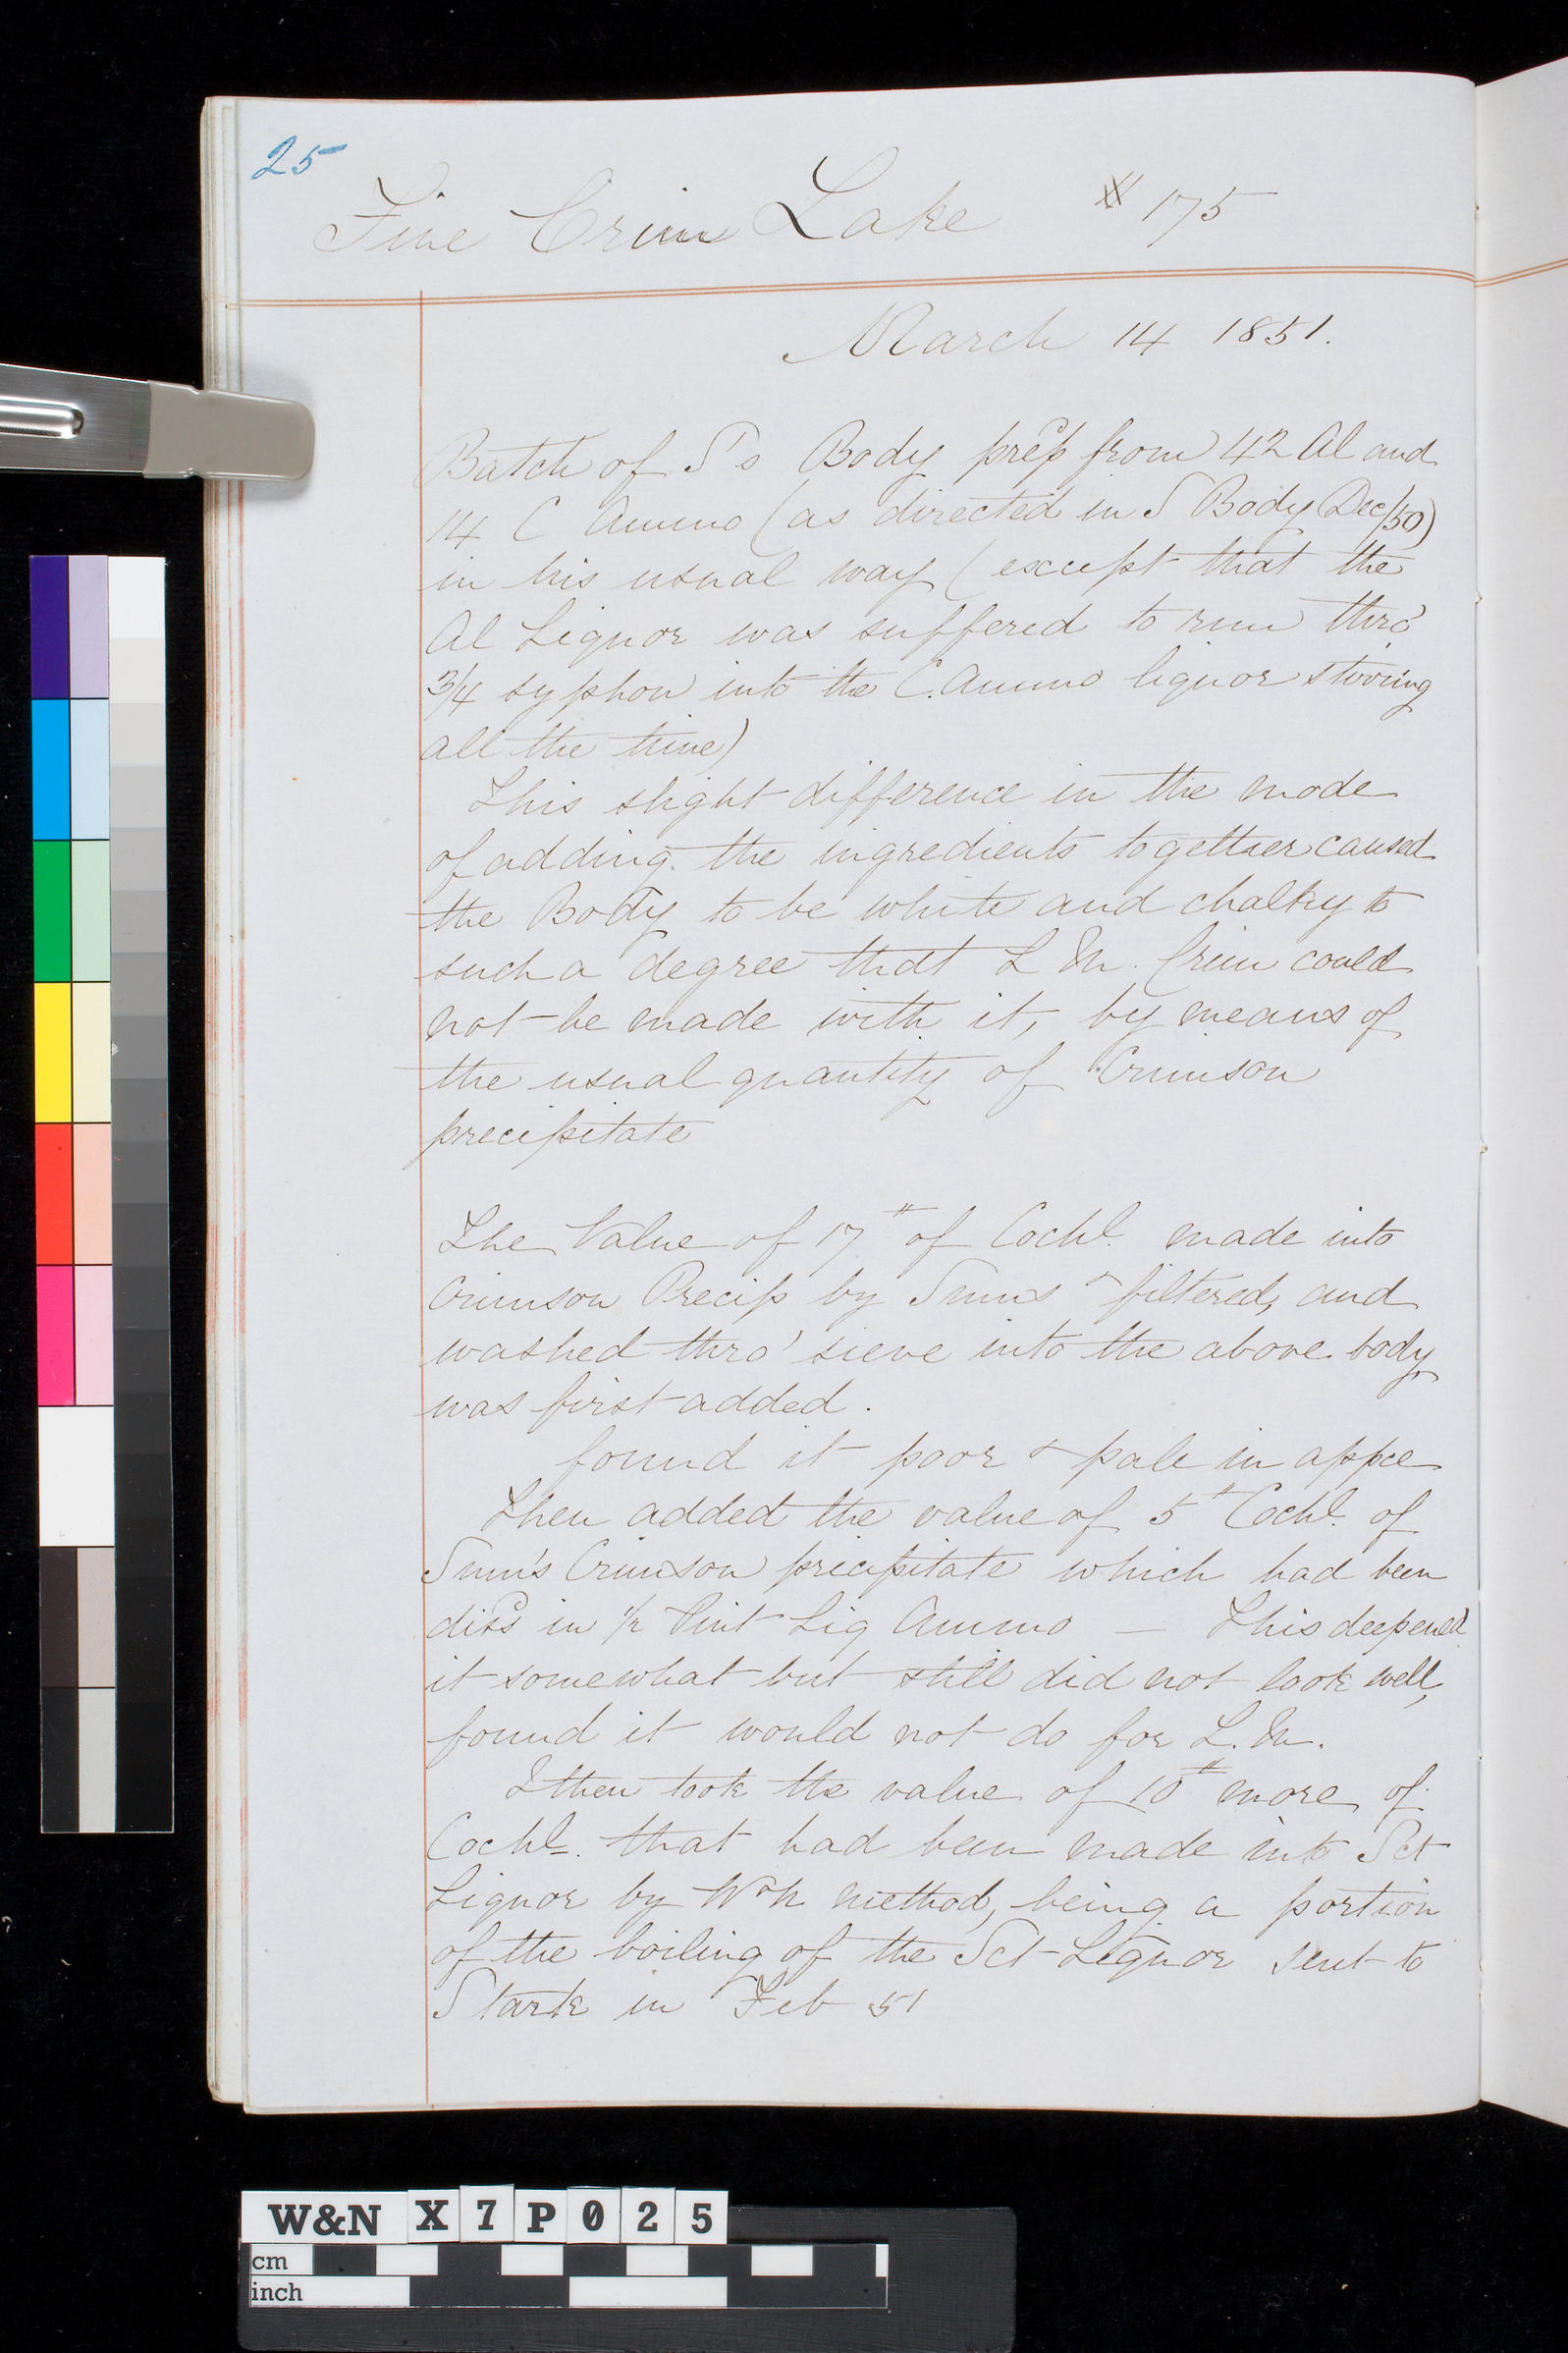 25
Fine Crims Lake # 175
March 14 1851.
Batch of S's Body prepd from 42 Al and
14 C Ammo (as directed in S Body (Dec/50)
in his usual way (except that the
Al Liquor was suffered to run thro'
3/4 syphon into the C. Ammo liquor stirring
all the time)
This slight difference in the mode
of adding the ingredients together caused
the Body to be white and chalky to
such a degree that L M. Crim could
not be made with it, by means of
the usual quantity of Crimson
precipitate
The Value of 17 # of Cochl. made into
Crimson Precip by Simms & filtered, and
washed thro' sieve into the above body
was first added.
found it poor & pale in appce
Then added the value of 5 # Cochl. of
Simm's Crimson precipitate which had been
dissd in 1/2 Pint Liq Ammo — This deepened
it somewhat but still did not look well,
found it would not do for L. M.
I then took the value of 10 # more of
Cochl. that had been made into Sct
Liquor by method, being a portion
of the boiling of the Sct Liquor sent to
Stark in Feb 51
W&N X7P025
cm
inch